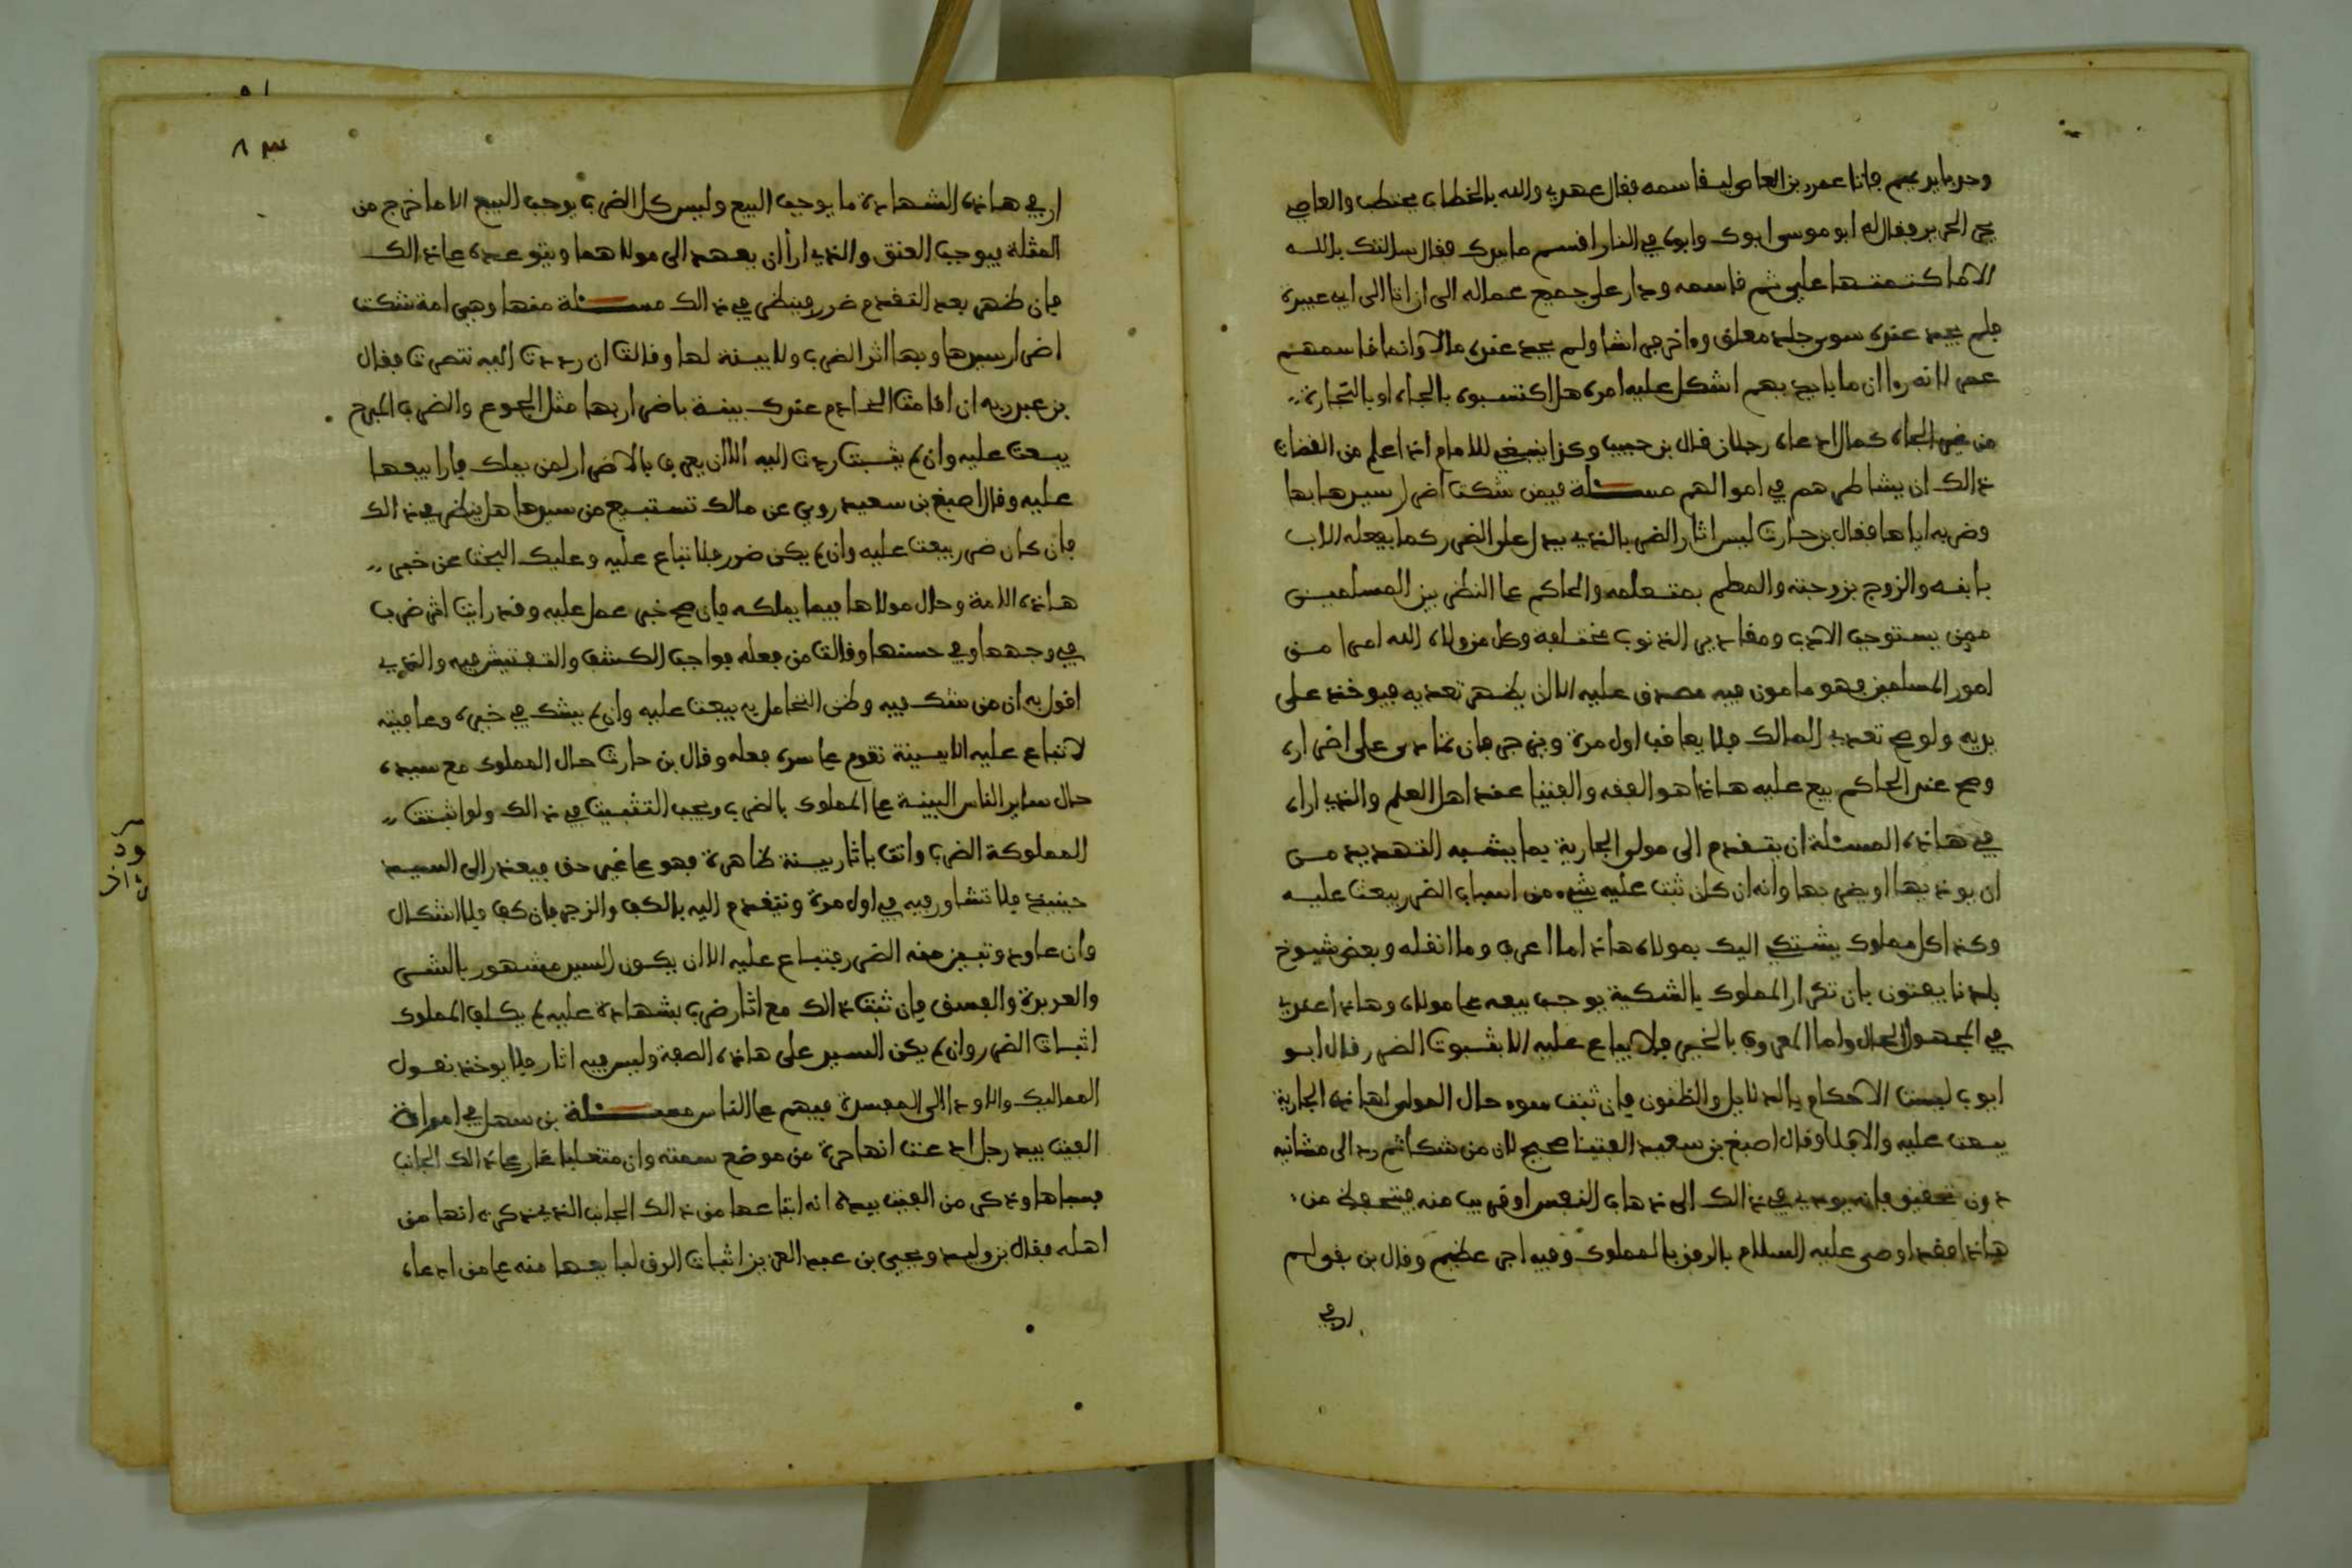 وجد بايديهم فاتا عمرو بن العاص ليفاسمه فقال عهدي والله بالخطاب يحتطب والعاصي
في الحرير فقال له ابو موسى ابوك وابوه في النار افسم مابيدك فقال سالتك بالله
الاما كتمتها علي ثم فاسمه ودار على جميع عماله الى ان اتا الى ابي عبيدة
فلم يجد عنده سوى جلد معلق واخر في اشا ولم يجد عنده مالا وانما فاسمهم
عمر لانه راا ان ما بايديهم اشكل عليه امره هل اكتسبوه بالجاه او بالتجارة
من غير الجاه كمال ادعاه رجلان قال بن حبيب وكذا ينبغي للامام اذا علم من القضات
ذالك ان يشاطرهم في اموالهم مسئلة فيمن شكت اضرار سيدها بها
وضربه اياها فقال بن حارث ليس اثار الضرب بالذي يدل على الضرر كما يفعله الاب
بابنه والزوج بزوجته والمعلم بمتعلمه والحاكم عا النظر بين المسلمين
ممن يستوجب الادب ومقادير الذنوب مختلفة وكل من ولاه الله امرا من
امور المسلمين فهو مامون فيه مصدق عليه الا ان يظهر تعديه فيوخذ على
يديه ولو صح تعدي المالك فلا يعاقب اول مرة ويزجر فان تمادى على اضراره
وصح عند الحاكم بيع عليه هاذا هو الفقه والفتيا عند اهل العلم والذي اراه
في هاذه المسئلة ان يتقدم الى مولى الجارية بما يشبه التهديد من
ان يوذيها او يضربها وانه ان كان ثبت عليه شيء من اسباب الضرر بيعت عليه
وكذا كل مملوك يشتكي اليك بمولاه هاذا ما اعرف وما انقله وبعض شيوخ
بلدنا يفتون بان تكرار المملوك بالشكية يوجب بيعه عا مولاه وهاذا عندي
في المجهول الحال واما المعروف بالخير فلا يباع عليه الا بثبوت الضرر قال ابو
ايوب ليست الاحكام بالدلايل والظنون فان ثبت سوء حال المولى لهاذه الجارية
بيعت عليه والا فلا وقال اصبغ بن سعيد الفتيا صحيح لان من شكا ثم رد الى مشانيه
دون تحقيق فانه يودي في ذالك الى ذهاب النفس او قريب منه فتتحفظ من
هاذا فقد اوصى عليه السلام بالرفق بالمملوك وفيه اجر عظيم وقال بن بقي لم
ار في
ار في هاذه الشهادة ما يوجب البيع وليس كل الضرب يوجب البيع الا ما خرج من
المثلة فيوجب العتق والذي ارا ان يعهد الى مولاهما ويتوعده عا ذالك
فان ظهر بعد التقدم ضرر فينظر في ذالك مسئلة منها وهي امة شكت
اضرار سيدها وبها اثر الضرب ولا بينة لها وقالت ان رددت اليه تنصرت فقال
بن عبد ربه ان اقامت الخادم عندك بينة باضراره بها مثل الجوع والضرب المبرح
بيعت عليه وان لم يثبت ردت اليه الا ان يعرف بالاضرار لمن يملك فارا بيعها
عليه وقال اصبغ بن سعيد روي عن مالك تستبيع من سيدها هل ينظر في ذالك
فان كان ضرر بيعت عليه وان لم يكن ضرر فلا تباع عليه وعليك البحث عن خبر
هاذه الامة وحال مولاها فيما يملكه فان صح خبر عمل عليه وقد رايت اثر ضرب
في وجهها وفي جسدها وقالت من فعله فواجب الكشف والتفتيش فيه والذي
اقول به ان من شك فيه وظن التحامل به بيعت عليه وان لم يشك في خبره وعافيته
لا تباع عليه الا ببينة تقوم عا سره فعله وقال بن حارث حال المملوك مع سيده
حال ساير الناس البينة عا المملوك بالضرب ويجب التثبت في ذالك ولو اثبتت
المملوكة الضرب واتت باثار بينة ظاهرة فهو عا غير حق فيعذر الى السيد
حينيذ فلا تشاور فيه في اول مرة وتتقدم اليه بالكف والزجر فان كف فلا اشكال
وان عاود وتبين منه الضرر فتباع عليه الا ان يكون السيد مشهور بالشر
والعربدة والفسق فان ثبت ذالك مع اثار ضرب بشهادة عليه لم يكلف المملوك
اثبات الضرر وان لم يكن السيد على هاذه الصفة وليس فيه اثار فلا يوخذ بقول
المماليك والا ودا الى المفسدة فيهم عا الناس مسئلة بن سهل في امراة
الفيت بيد رجل ادعت انها حرة من موضع سمته وان متغلبا غار عا ذالك الجانب
فسباها وذكر من الفيت بيده انه ابتاعها من ذالك الجانب الذي ذكرت انها من
اهله فقال بن وليد ويحيى بن عبد العزيز اثبات الرق لبايعها منه عا من ادعاه